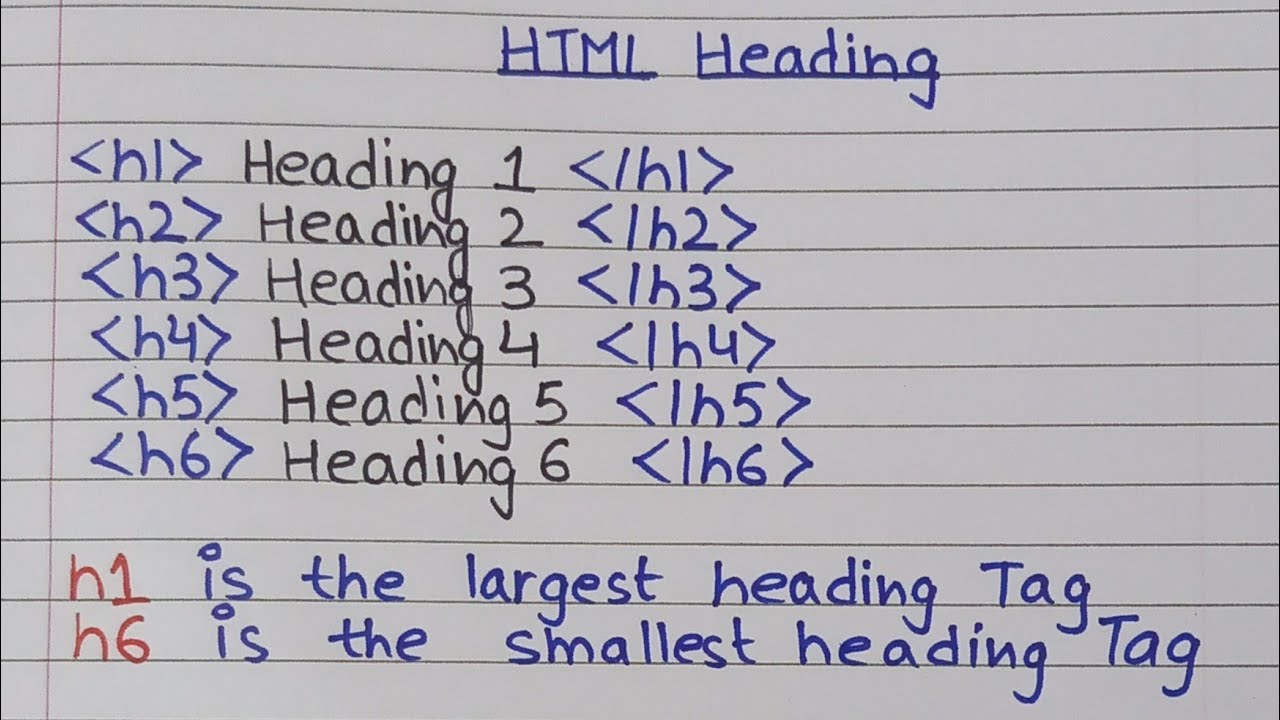 HTML Heading
<h1> Heading 1 </h1>
<h2> Heading 2 </h2>
<h3> Heading 3 </h3>
<h4> Heading 4 </h4>
<h5> Heading 5 </h5>
<h6> Heading 6 </h6>
h1 is the largest heading Tag
h6 is the smallest heading Tag